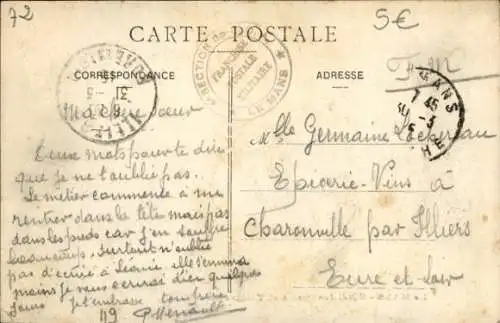 72
5€
CARTE POSTALE
CORRESPONDANCE
ADRESSE
F M
SECTION DE
FRANCHISE
POSTALE
MILITAIRE
LE MANS
MANS
7 45
30 -3
HE
31 -3
Ma chère sœur
Deux mots pour te dire
que je ne t'oublie pas.
Le métier commence à me
rentrer dans la tête mais pas
dans les pieds car j'en souffre
beaucoup, surtout n'oublie
pas d'écrire à Léonie, elle s'ennuie
moins je vous écrirai d'ici quelques
jours je t'embrasse ton frère
119 P Menault
Mlle Germaine
Epicerie-Vins à
Charonville par Illiers
Eure et Loir